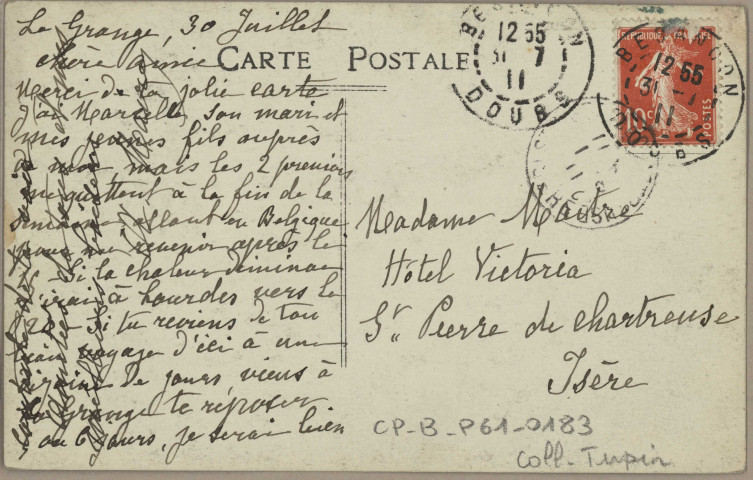 La Grange, 30 Juillet
chère amie
CARTE POSTALE
Merci de la jolie carte
J'ai Marcelle, son mari et
mes jeunes fils auprès
de moi, mais les 2 premiers
me quittent à la fin de la
semaine allant en Belgique
pour me revenir après le
Si la chaleur diminue
j'irai à Lourdes vers le
Si tu reviens de ton
voyage d'ici à une
dizaine de jours viens à
La Grange te reposer
ou 6 jours, je serai bien
Madame Maute
Hôtel Victoria
St Pierre de Chartreuse
Isère
BESANÇON
12 55
31 7
11
DOUBS
REPUBLIQUE FRANÇAISE
10c
POSTES
BESANÇON
12 55
31
11
DOUBS
CP-B-P61-0183
Coll. Tupin